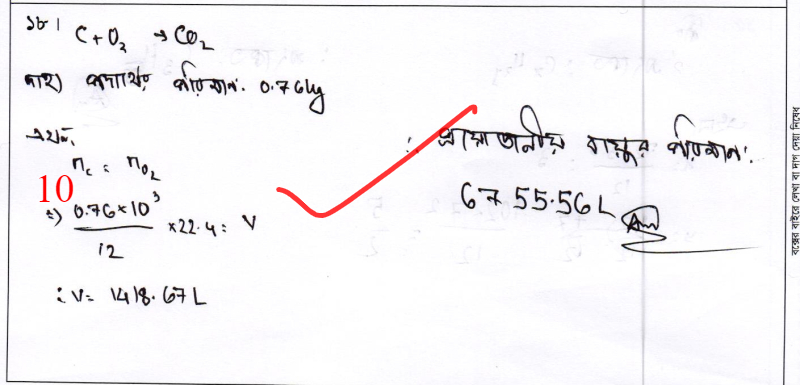 ১৮।
C + O₂ → CO₂
দাহ্য পদার্থের পরিমাণ: 0.76kg
এখন,
n_c = n_O₂
10
⇒ 0.76×10³ / 12 ×22.4 = V
∴ V = 1418.67 L
∴ প্রয়োজনীয় বায়ুর পরিমাণ:
6755.56 L
Ans
বক্সের বাইরে লেখা বা দাগ দেয়া নিষেধ